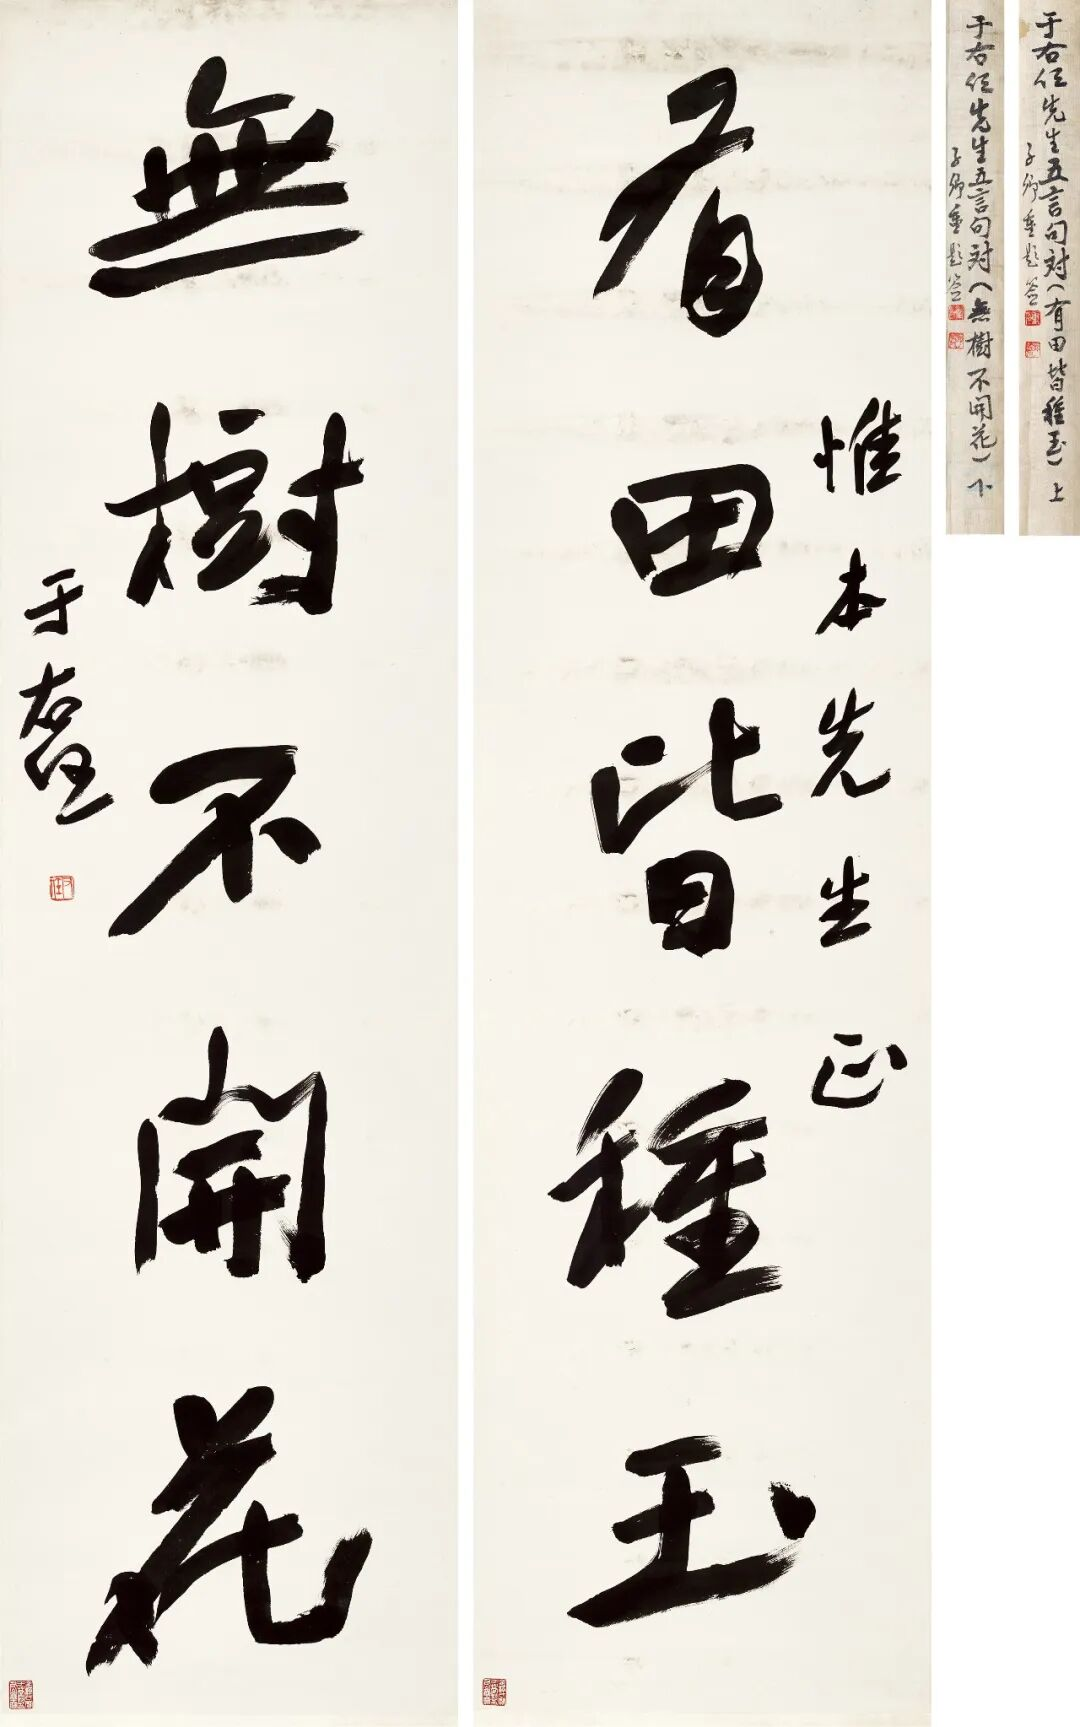 有田皆種玉
惟本先生正
無樹不開花
于右任
右任
于右任先生五言句対(有田皆種玉)上
題簽
于右任先生五言句対(無樹不開花)下
題簽